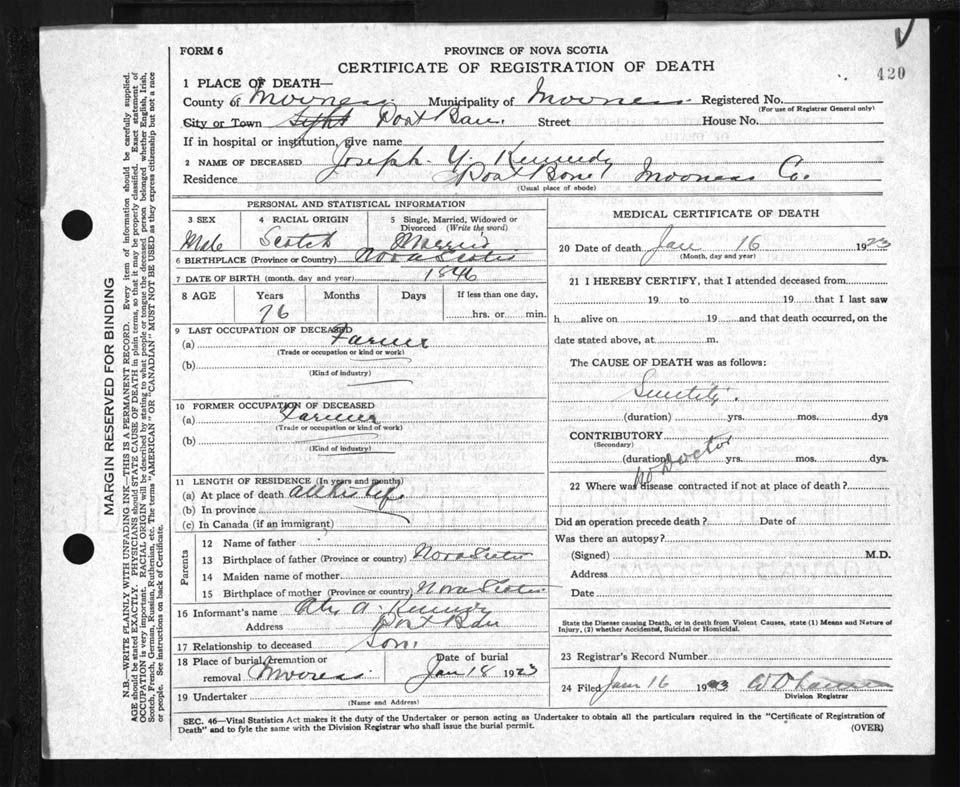 FORM 6
PROVINCE OF NOVA SCOTIA
CERTIFICATE OF REGISTRATION OF DEATH
420
1 PLACE OF DEATH—
County of Municipality of Registered No.
(For use of Registrar General only)
City or Town Street House No.
If in hospital or institution, give name
2 NAME OF DECEASED Joseph Y. Kennedy
Residence Co.
(Usual place of abode)
PERSONAL AND STATISTICAL INFORMATION
3 SEX 4 RACIAL ORIGIN 5 Single, Married, Widowed or Divorced (Write the word)
Male Scotch Married
6 BIRTHPLACE (Province or Country) Nova Scotia
7 DATE OF BIRTH (month, day and year) 1846
8 AGE Years Months Days If less than one day,
76 hrs. or min.
9 LAST OCCUPATION OF DECEASED
(a) Farmer
(Trade or occupation or kind or work)
(b)
(Kind of industry)
10 FORMER OCCUPATION OF DECEASED
(a) Farmer
(Trade or occupation or kind of work)
(b)
(Kind of industry)
11 LENGTH OF RESIDENCE (In years and months)
(a) At place of death all his life
(b) In province
(c) In Canada (if an immigrant)
Parents
12 Name of father
13 Birthplace of father (Province or country) Nova Scotia
14 Maiden name of mother
15 Birthplace of mother (Province or country) Nova Scotia
16 Informant's name A.
Address
17 Relationship to deceased Son.
18 Place of burial, cremation or removal Date of burial Jan 18 1923
19 Undertaker
(Name and Address)
MEDICAL CERTIFICATE OF DEATH
20 Date of death Jan 16 1923
(Month, day and year)
21 I HEREBY CERTIFY, that I attended deceased from
19 to 19 that I last saw
h alive on 19 and that death occurred, on the
date stated above, at m.
The CAUSE OF DEATH was as follows:
(duration) yrs. mos. dys
CONTRIBUTORY
(Secondary)
(duration) yrs. mos. dys.
No Doctor
22 Where was disease contracted if not at place of death?
Did an operation precede death? Date of
Was there an autopsy?
(Signed) M.D.
Address
Date
State the Disease causing Death, or in death from Violent Causes, state (1) Means and Nature of
Injury, (2) whether Accidental, Suicidal or Homicidal.
23 Registrar's Record Number
24 Filed 16
Division Registrar
SEC. 46—Vital Statistics Act makes it the duty of the Undertaker or person acting as Undertaker to obtain all the particulars required in the "Certificate of Registration of
Death" and to fyle the same with the Division Registrar who shall issue the burial permit.
(OVER)
MARGIN RESERVED FOR BINDING
N.B.—WRITE PLAINLY WITH UNFADING INK—THIS IS A PERMANENT RECORD. Every item of information should be carefully supplied.
AGE should be stated EXACTLY. PHYSICIANS should STATE CAUSE OF DEATH in plain terms, so that it may be properly classified. Exact statement of
OCCUPATION is very important. RACIAL ORIGIN will be described by stating to what people or tongue the deceased person belonged whether English, Irish,
Scotch, French, German, Russian, Ruthenian, etc. The terms "AMERICAN" OR "CANADIAN" MUST NOT BE USED as they express citizenship but not a race
or people. See instructions on back of Certificate.